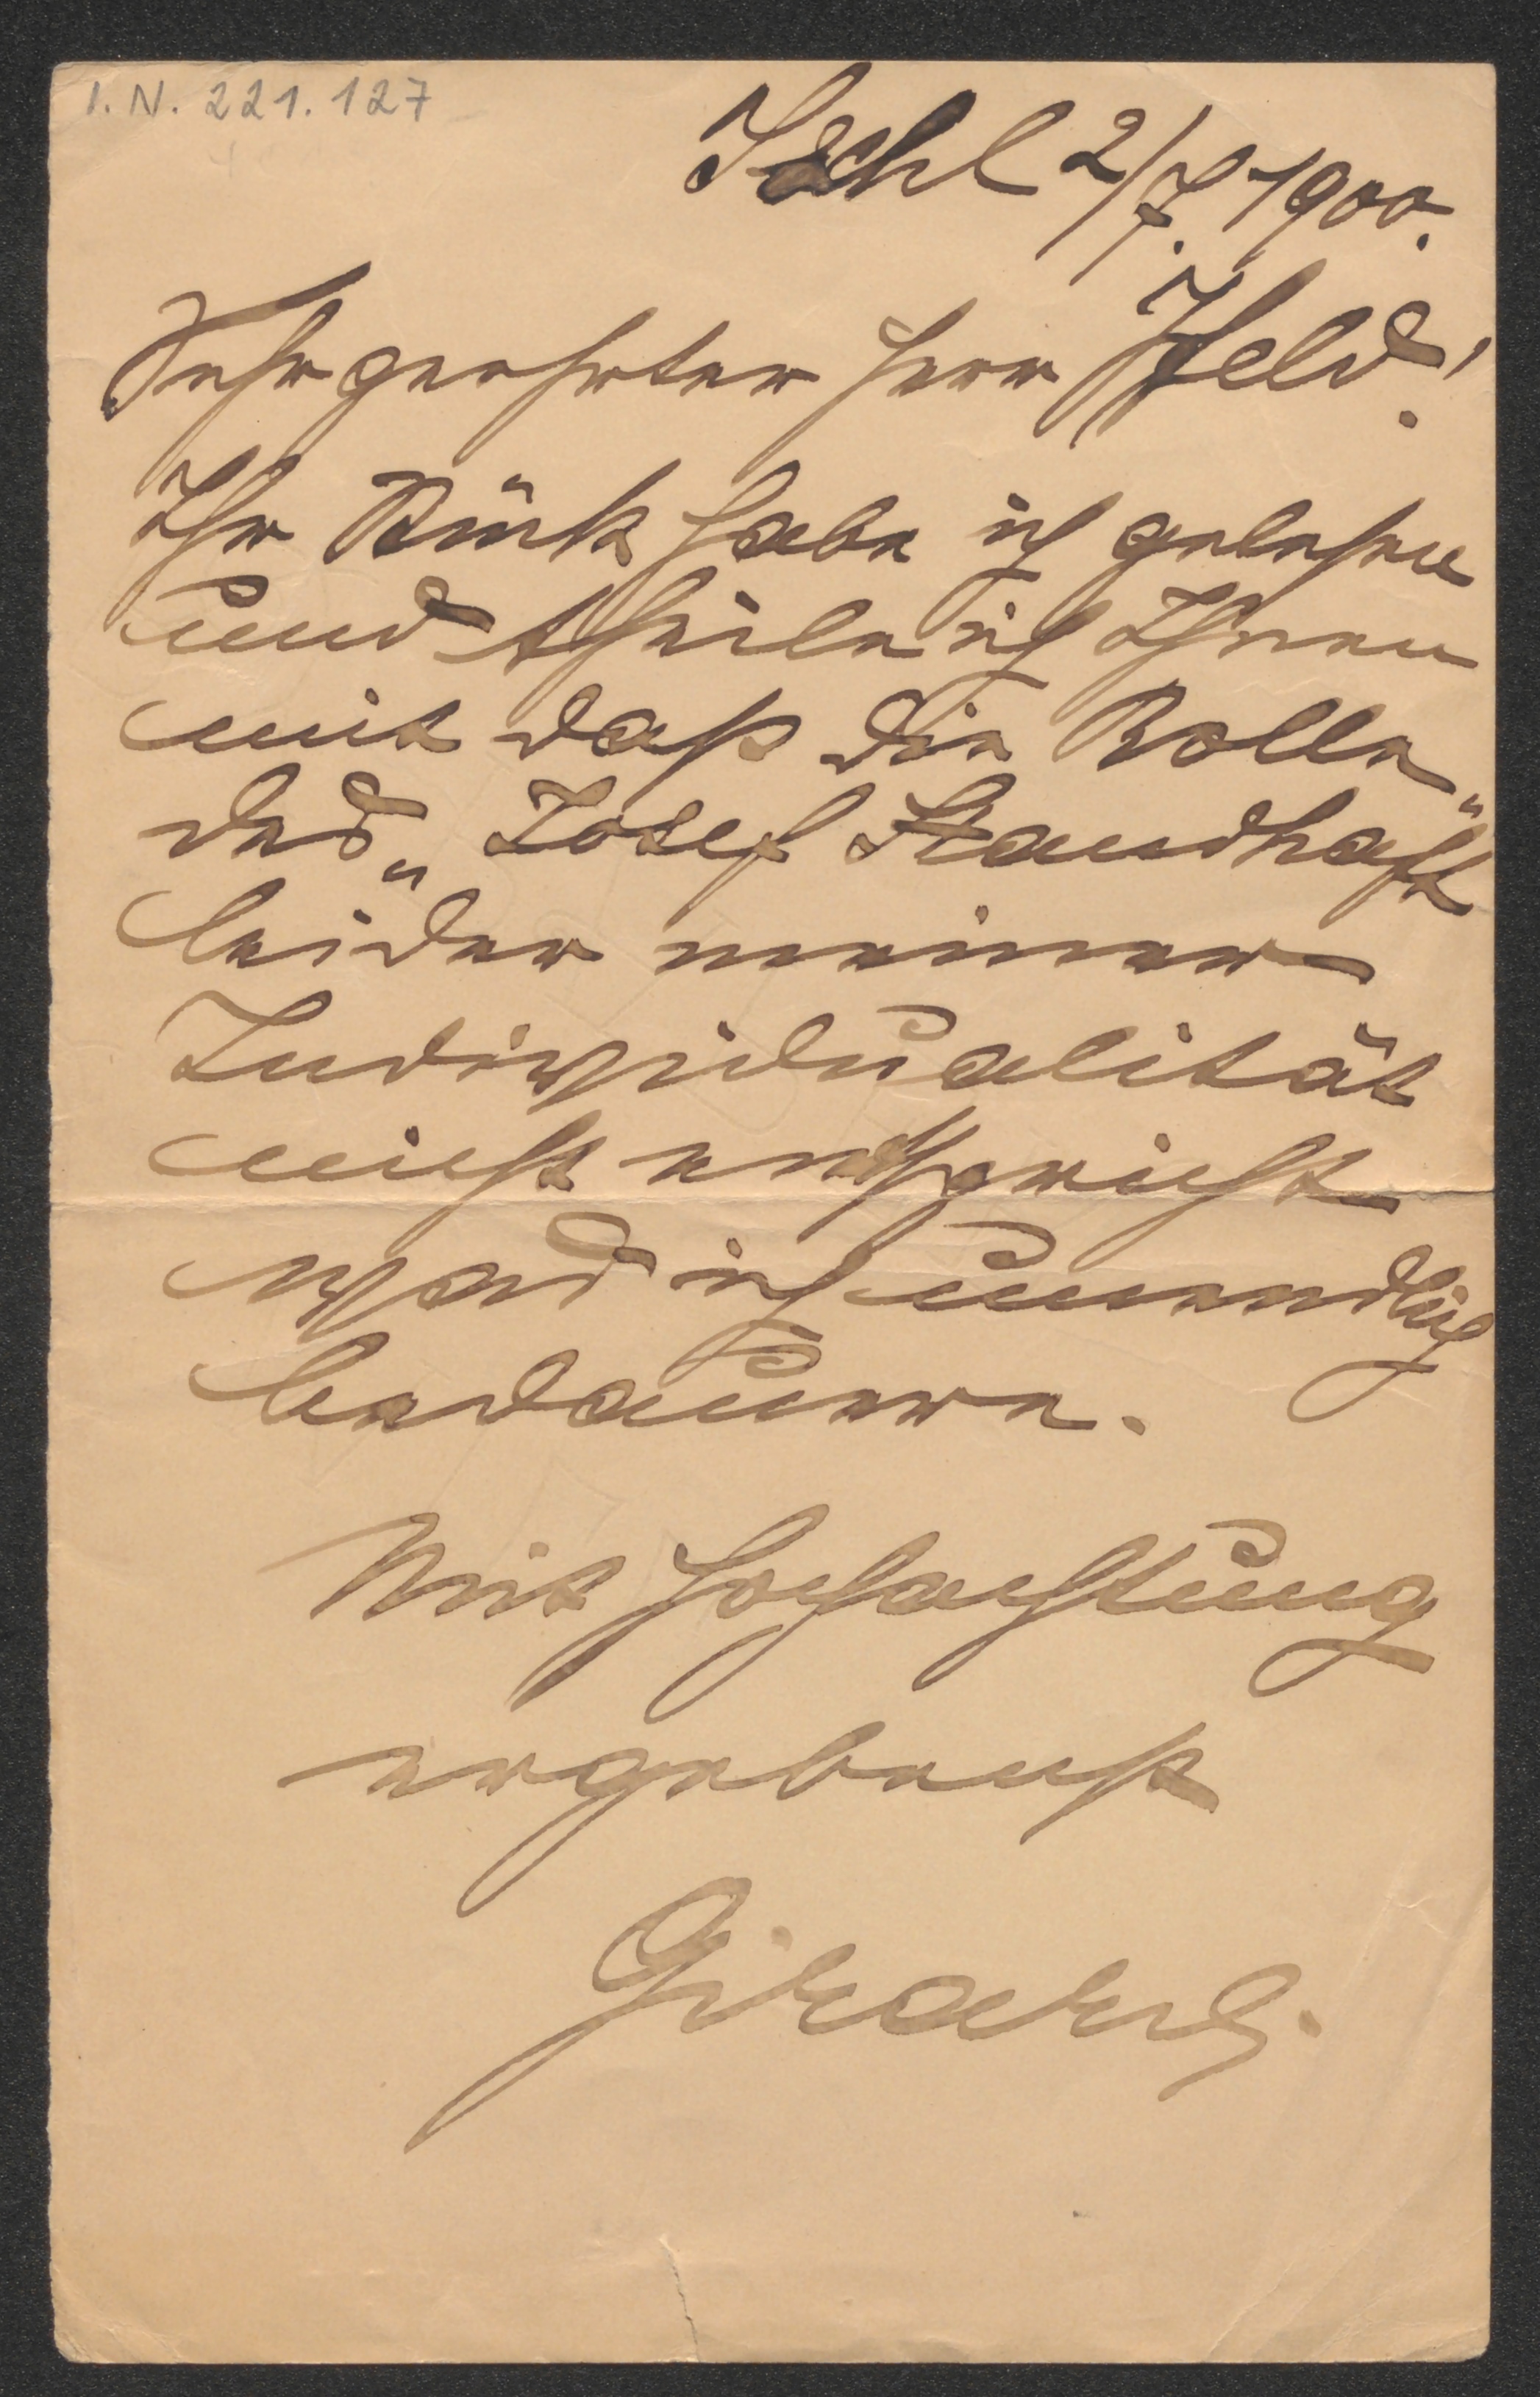 I. N. 221.127
Ischl 2/7. 1900.
Sehr geehrter Herr Held!
Ihr Stück habe ich gelesen
und theile ich Ihnen
mit daß die Rolle
des „Josef Standhaft"
leider meiner
Individualität
nicht entspricht
was ich unendlich
bedauere.
Mit Hochachtung
ergebenst
Girardi.